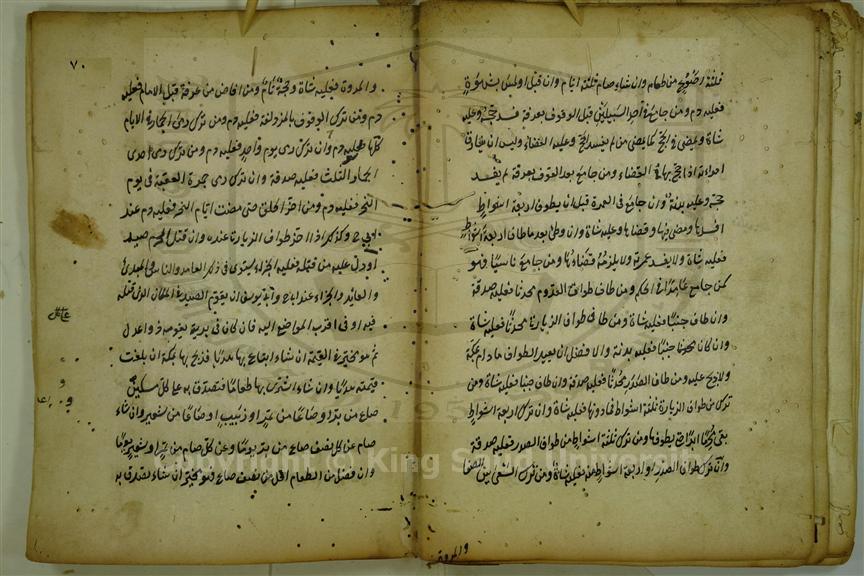 ثلثة اصوع من طعام وان شاء صام ثلثة ايام وان قبل او لمس بشهوة
فعليه دم ومن جامع في احد السبيلين قبل الوقوف بعرفة فسد حجه وعليه
شاة ويمضي في الحج كما يمضي من لم يفسد الحج وعليه القضاء وليس ان يفارق
امراته اذا حج بها في القضاء ومن جامع بعد الوقوف بعرفة لم يفسد
حجه وعليه بدنة وان جامع في العمرة قبل ان يطوف اربعة اشواط
افسدها ومضى فيها وقضاها وعليه شاة وان وطئ بعد ما طاف اربعة اشواط
فعليه شاة ولا يفسد عمرته ولا يلزمه قضاؤها ومن جامع ناسيا فهو
كمن جامع عامدا في الحكم ومن طاف طواف القدوم محدثا فعليه صدقة
وان طاف جنبا فعليه شاة ومن طاف طواف الزيارة محدثا فعليه شاة
وان كان جنبا فعليه بدنة والافضل ان يعيد الطواف ما دام بمكة
ولا ذبح عليه ومن طاف الصدر محدثا فعليه صدقة وان طاف جنبا فعليه شاة ومن
ترك من طواف الزيارة ثلثة اشواط فما دونها فعليه شاة وان ترك اربعة اشواط
بقي محرما ابدا حتى يطوفها ومن ترك ثلثة اشواط من طواف الصدر فعليه صدقة
وان ترك طواف الصدر او اربعة اشواط منه فعليه شاة ومن ترك السعي بين الصفا
والمروة
٧٠
والمروة فعليه شاة وحجه تام ومن افاض من عرفة قبل الامام فعليه
دم ومن ترك الوقوف بالمزدلفة فعليه دم ومن ترك رمي الجمار في الايام
كلها فعليه دم وان ترك رمي يوم واحد فعليه دم ومن ترك رمي احدى
الجمار الثلث فعليه صدقة وان ترك رمي جمرة العقبة في يوم
النحر فعليه دم ومن اخر الحلق حتى مضت ايام النحر فعليه دم عند
ابي ح وكذلك اذا اخر طواف الزيارة عنده وان قتل المحرم صيدا
او دل عليه من قتله فعليه الجزاء يستوي في ذلك العامد والناسي والمبتدئ
والعائد والجزاء عند ابي ح وابي يوسف ان يقوم الصيد في المكان الذي قتله
فيه او في اقرب المواضع اليه فان كان في برية يقومه ذوا عدل
ثم هو مخير في القيمة ان شاء ابتاع بها هديا فذبح بها بمكة ان بلغت
قيمته هديا وان شاء اشترى بها طعاما فتصدق به على كل مسكين
صاع من بر او صاعا من تمر او زبيب او صاعا من شعير وان شاء
صام عن كل نصف صاع من بر يوما وعن كل صاع من تمر او شعير يوما
وان فضل من الطعام اقل من نصف صاع فهو مخير ان شاء تصدق به
King Saud University
1957